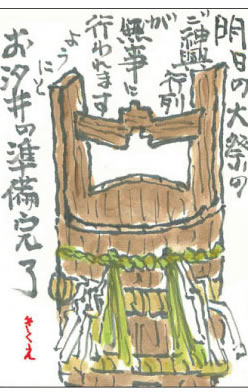 明日の大祭の
ご神輿行列
が
無事に
行われます
ように
と
お汐井の準備完了
きくえ